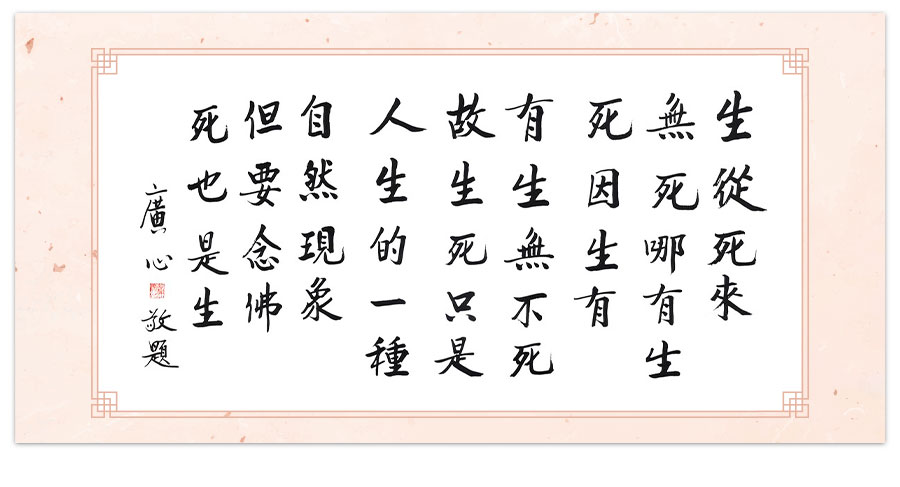 生從死來
無死哪有生
死因生有
有生無不死
故生死只是
人生的一種
自然現象
但要念佛
死也是生
廣心敬題